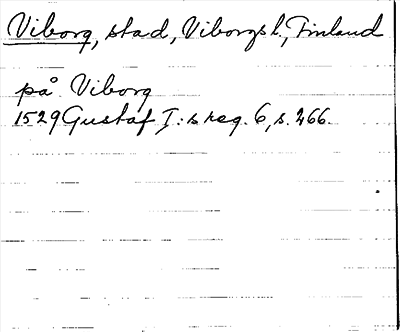 Viborg, stad, Viborgsl., Finland
på Viborg
1529 Gustaf I:s reg. 6, s. 266.